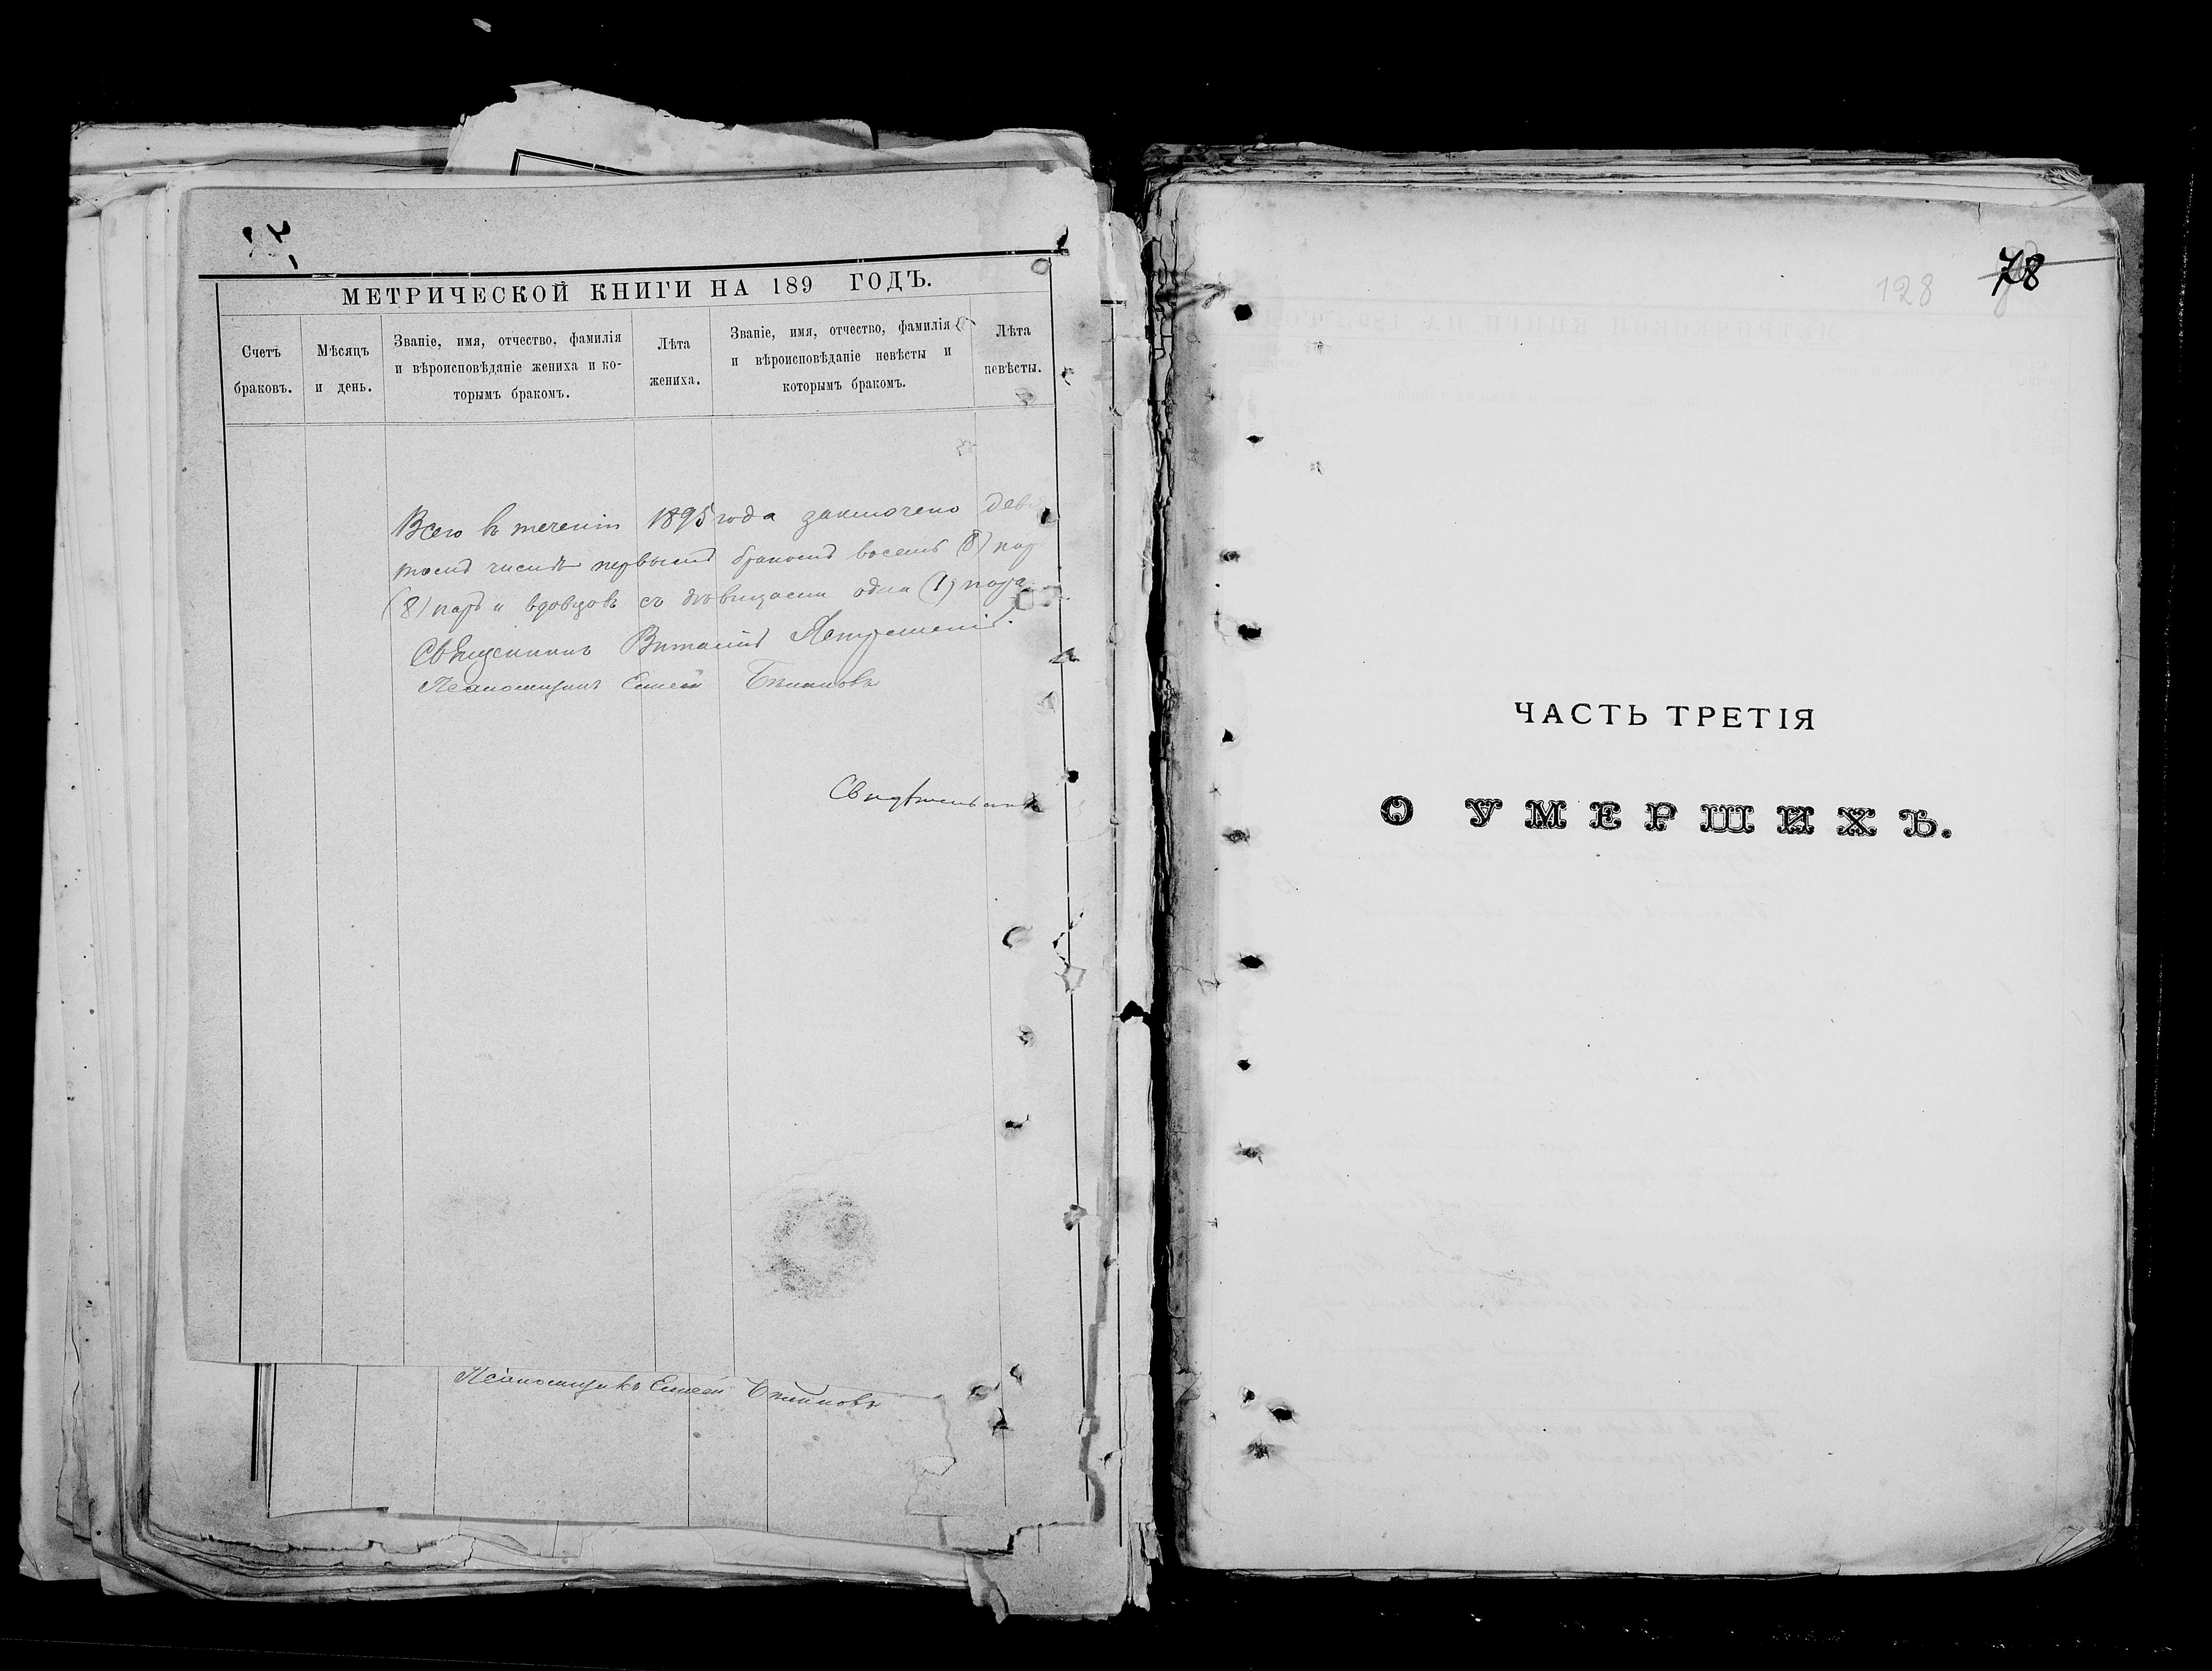 МЕТРИЧЕСКОЙ КНИГИ НА 189 ГОДЪ.
Счетъ
браковъ.
Мѣсяцъ
и день.
Званіе, имя, отчество, фамилія
и вѣроисповѣданіе жениха и ко-
торымъ бракомъ.
Лѣта
жениха.
Званіе, имя, отчество, фамилія
и вѣроисповѣданіе невѣсты и
которымъ бракомъ.
Лѣта
невѣсты.
Всего въ теченіи 1895 года заключено
томъ числѣ первымъ бракомъ восемь (8) пар
(8) паръ и вдовцовъ съ дѣвицами одна (1) пара
Священникъ Виталій
Псаломщикъ Елисей
Псаломщикъ Елисей
128
78
ЧАСТЬ ТРЕТІЯ
О УМЕРШИХЪ.